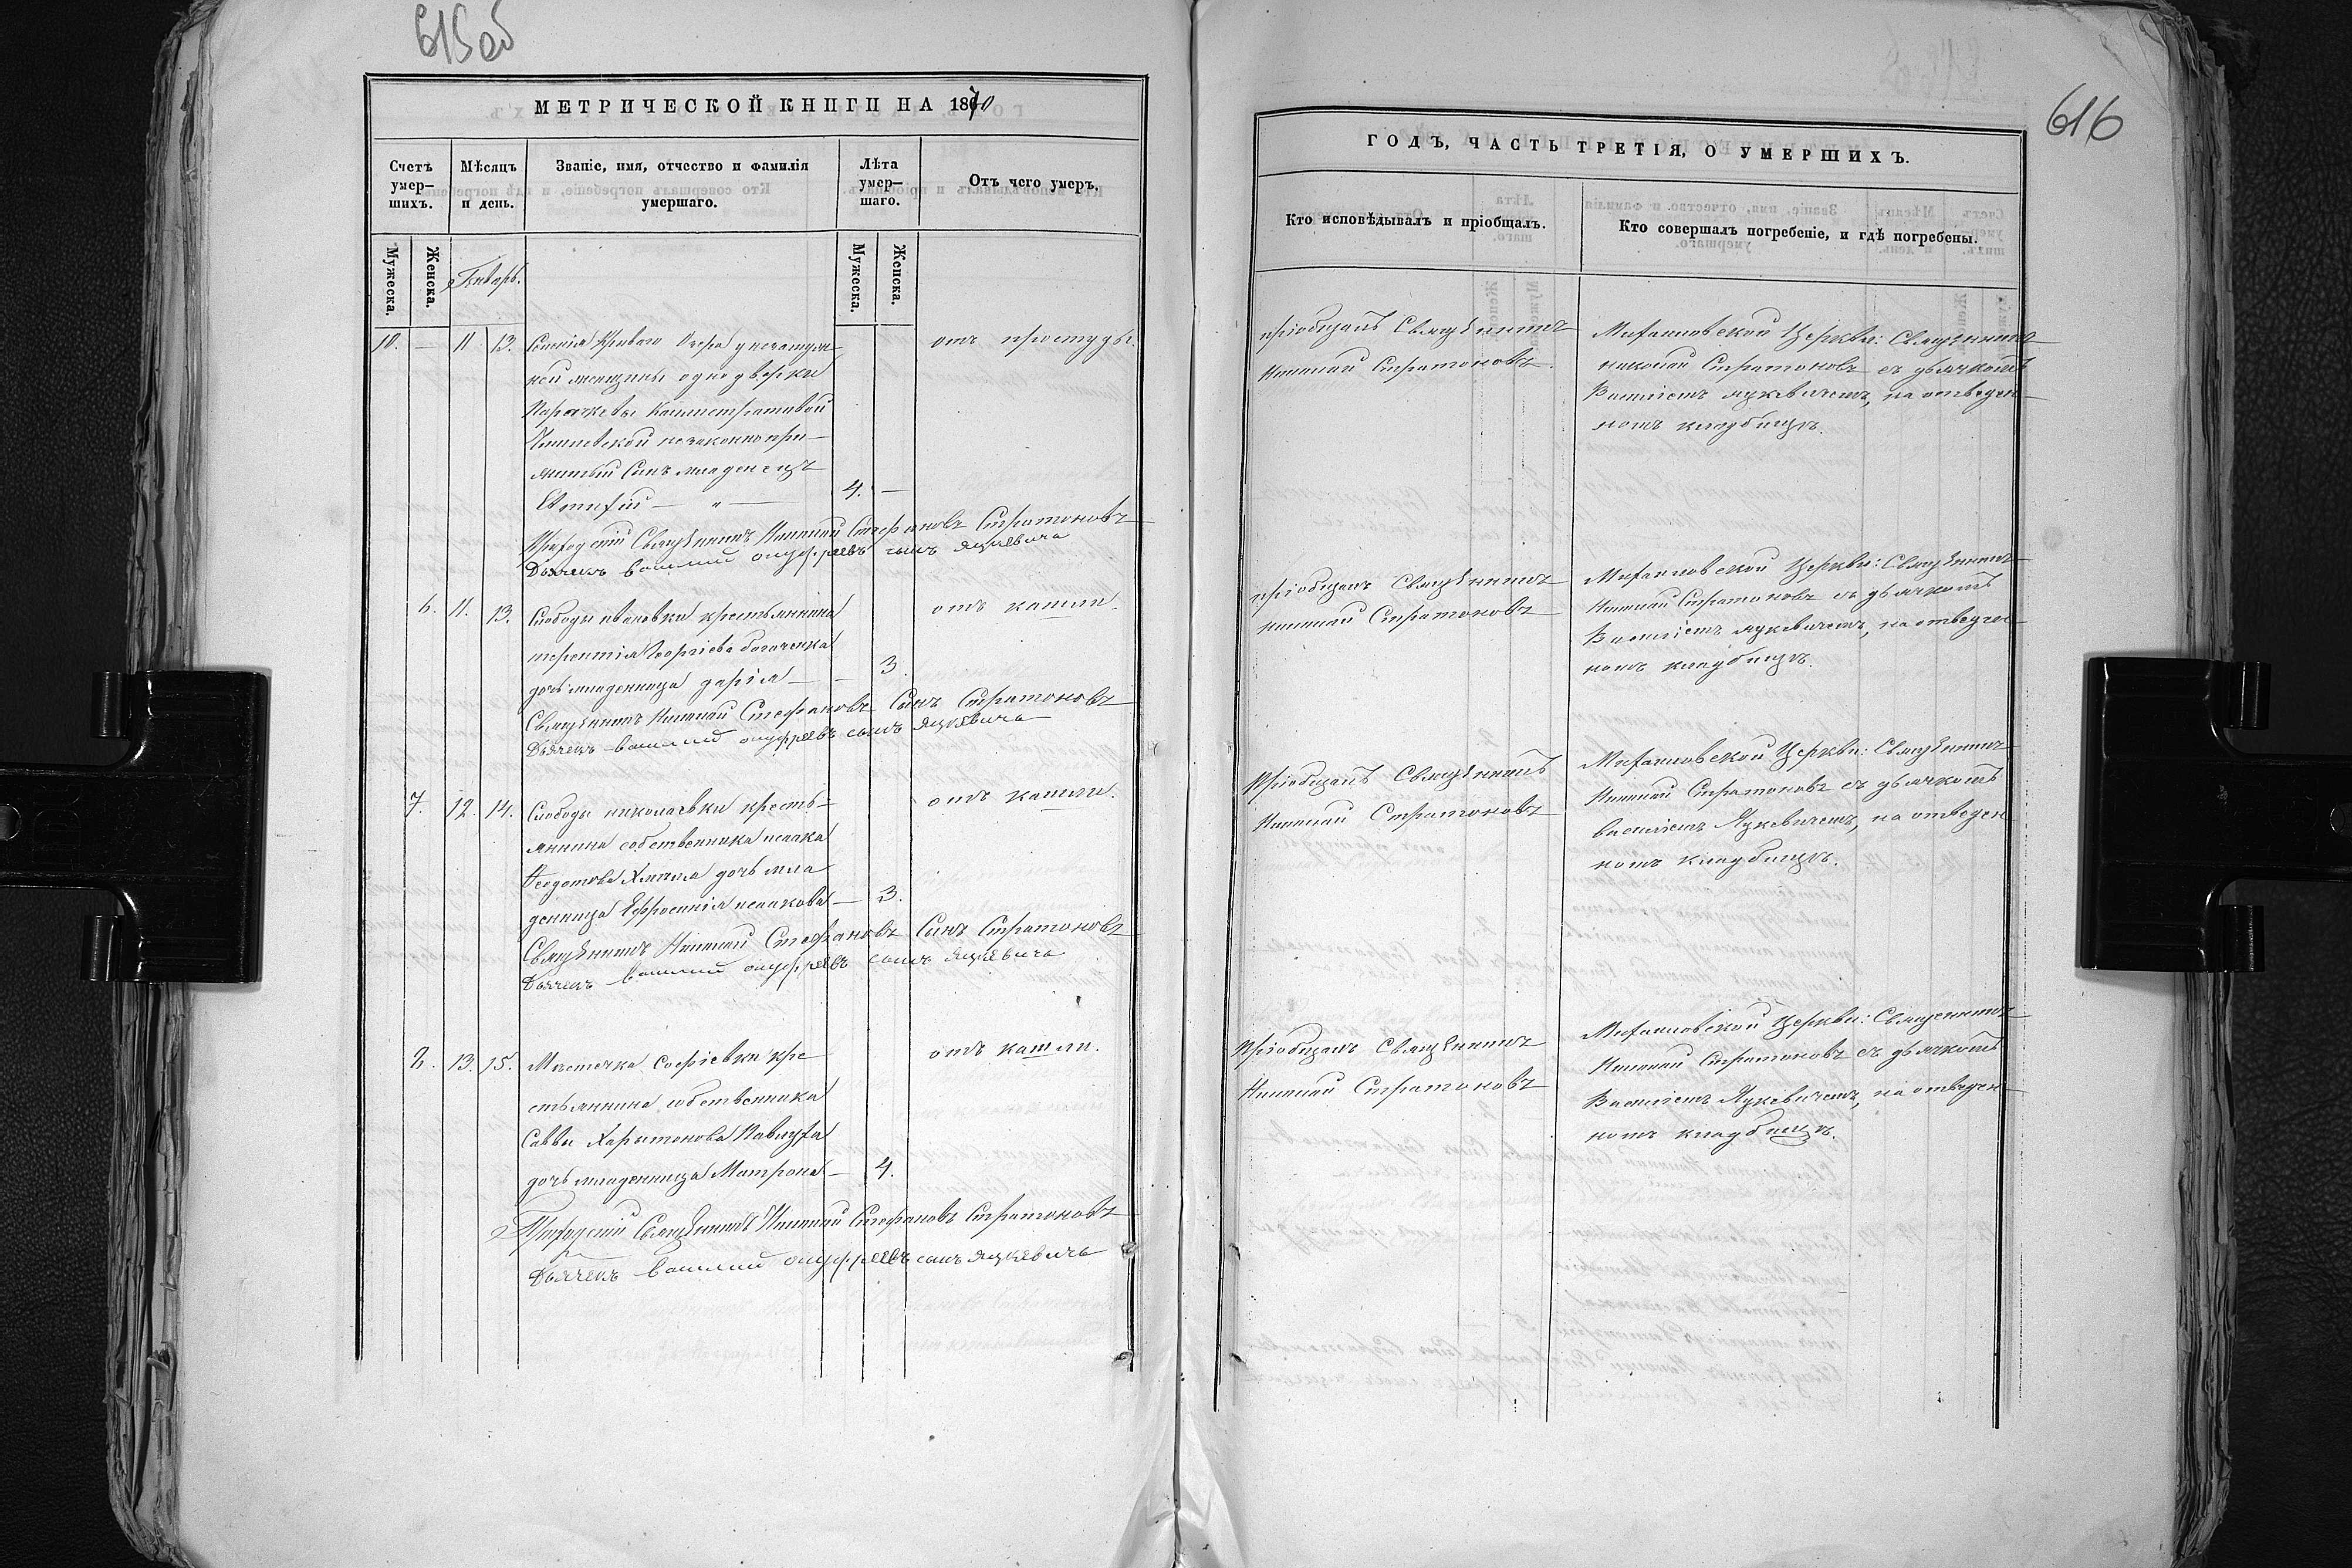 615 об
МЕТРИЧЕСКОЙ КНИГИ НА 1870
Счетъ умер-шихъ.
Мѣсяцъ и день.
Званіе, имя, отчество и фамилія умершаго.
Лѣта умер-шаго.
Отъ чего умеръ.
Мужеска.
Женска.
Январь.
Мужеска.
Женска.
10. — 11 13. Селенія Криваго Озера
ней женщины однодворки
Параскевы Калистратовой
незаконно при-
житый Сынъ младенецъ
4. —
отъ простуды.
Приходскій Священникъ Николай Стефановъ Стратоновъ
Дьячекъ Василий онуфріевъ сынъ Яцкевичъ
6. 11. 13. Слободы ивановки крестьянина
терентія Георгіева
дочь младеница дарія — — 3.
отъ кашли.
Священникъ Николай Стефановъ Сынъ Стратоновъ
Дьячекъ василий онуфріевъ сынъ Яцкевичъ
7. 12. 14. Слободы николаевки кресть-
янина собственника исаака
Феодотова дочь мла
деница Ефросинія исаакова — 3.
отъ кашли.
Священникъ Николай Стефановъ Сынъ Стратоновъ
Дьячекъ василий онуфріевъ сынъ Яцкевичъ
8. 13. 15. Мѣстечка Софіевки кре
стьянина собственника
Саввы Харытонова
дочь младеница Матрона — 4.
отъ кашли.
Приходскій Священникъ Николай Стефановъ Стратоновъ
Дьячекъ василий онуфріевъ сынъ Яцкевичъ
616
ГОДЪ, ЧАСТЬ ТРЕТІЯ, О УМЕРШИХЪ.
Кто исповѣдывалъ и пріобщалъ.
Кто совершалъ погребеніе, и гдѣ погребены.
пріобщалъ Священникъ
Николай Стратоновъ.
Михаиловской Церкви: Священникъ
николай Стратоновъ съ дьячкомъ
Василіемъ яцкевичемъ, на отведен-
номъ кладбищѣ.
пріобщалъ Священникъ
николай Стратоновъ
Михаиловской Церкви: Священникъ
Николай Стратоновъ съ дьячкомъ
Василіемъ яцкевичемъ, на отведен-
номъ кладбищѣ.
Пріобщалъ Священникъ
Николай Стратоновъ
Михаиловской Церкви: Священникъ
Николай Стратоновъ съ дьячкомъ
василіемъ Яцкевичемъ, на отведен
номъ кладбищѣ.
Пріобщалъ Священникъ
Николай Стратоновъ
Михаиловской Церкви: Священникъ
Николай Стратоновъ съ дьячкомъ
Василіемъ Яцкевичемъ, на отведен-
номъ кладбищѣ.